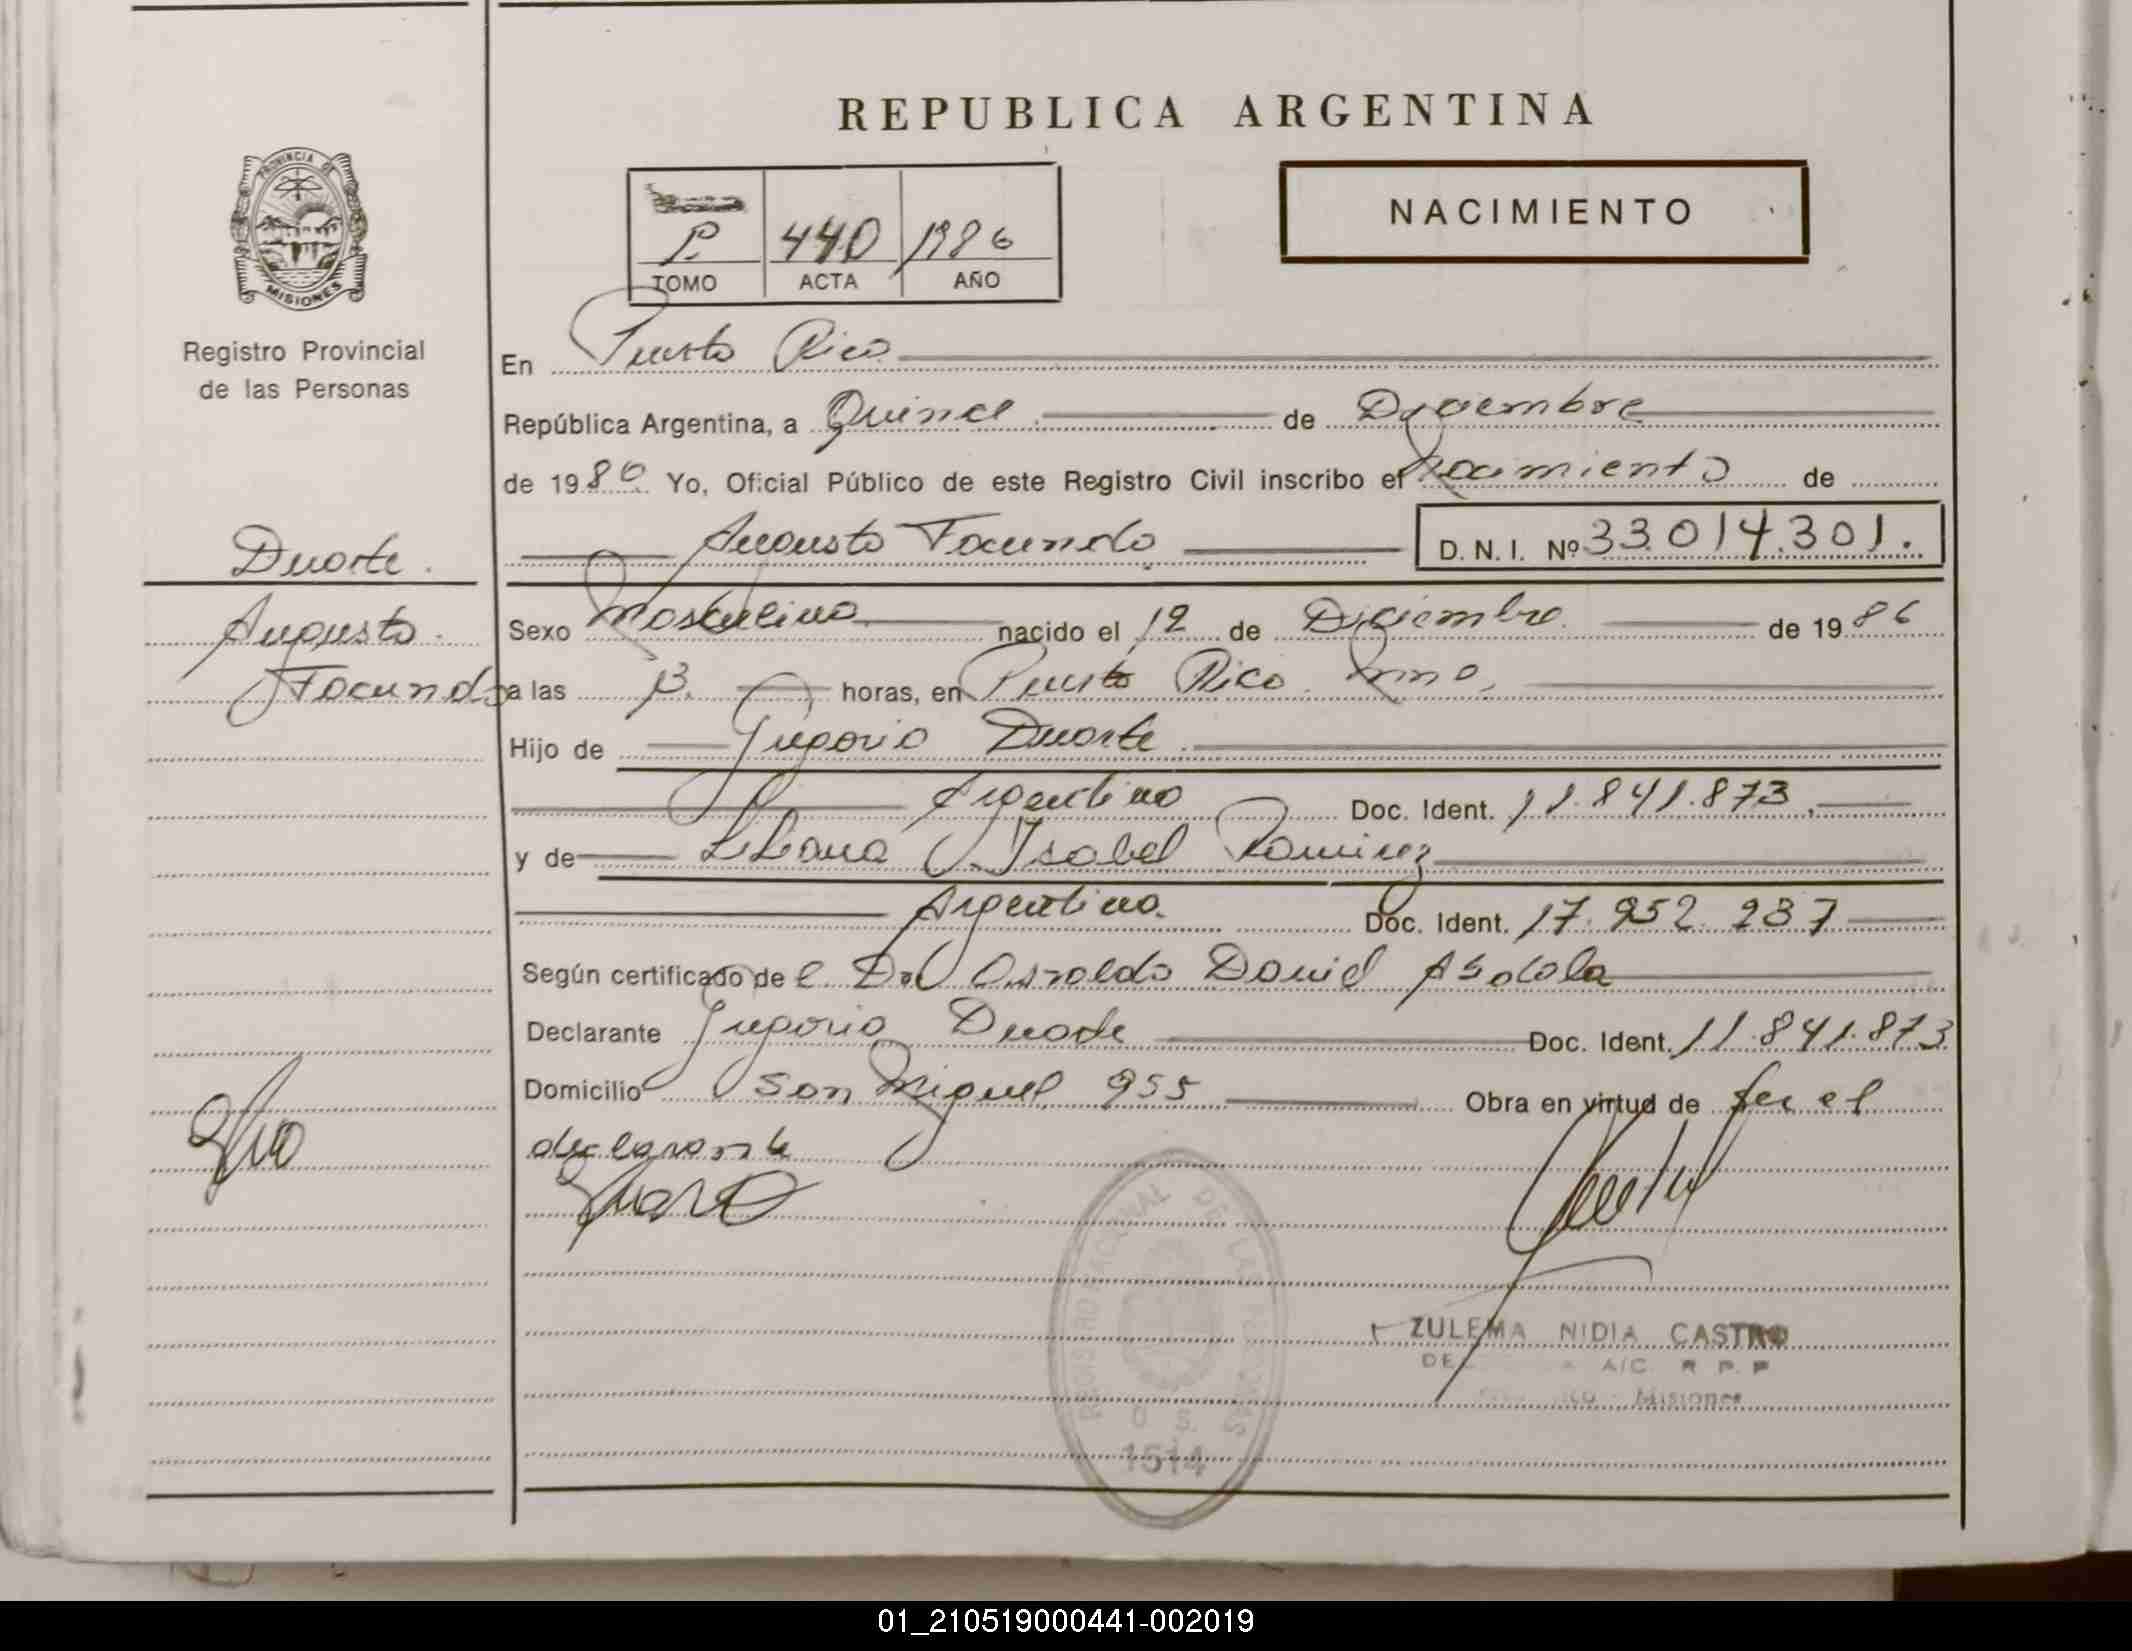 REPUBLICA ARGENTINA
PROVINCIA DE
MISIONES
Registro Provincial
de las Personas
440 1986
TOMO ACTA AÑO
NACIMIENTO
En Puerto Rico
República Argentina, a Quince de Diciembre
de 1986 Yo, Oficial Público de este Registro Civil inscribo el nacimiento de
Duarte.
Augusto Facundo D. N. I. Nº 33.014.301.
Augusto
Facundo
Sexo Masculino nacido el 12 de Diciembre de 1986
a las 13. horas, en Puerto Rico Mnes.
Hijo de Gregorio Duarte
Argentino Doc. Ident. 11.841.873.
y de Liliana Isabel Ramirez
Argentina. Doc. Ident. 17.952.237
Según certificado de l Dr Osvaldo Daniel
Declarante Gregorio Duarte Doc. Ident. 11.841.873
Domicilio San Miguel 955 Obra en virtud de ser el
declarante
REGISTRO NACIONAL DE LAS PERSONAS
O. S.
1514
ZULEMA NIDIA CASTRO
A/C R P. P
Misiones
01_210519000441-002019